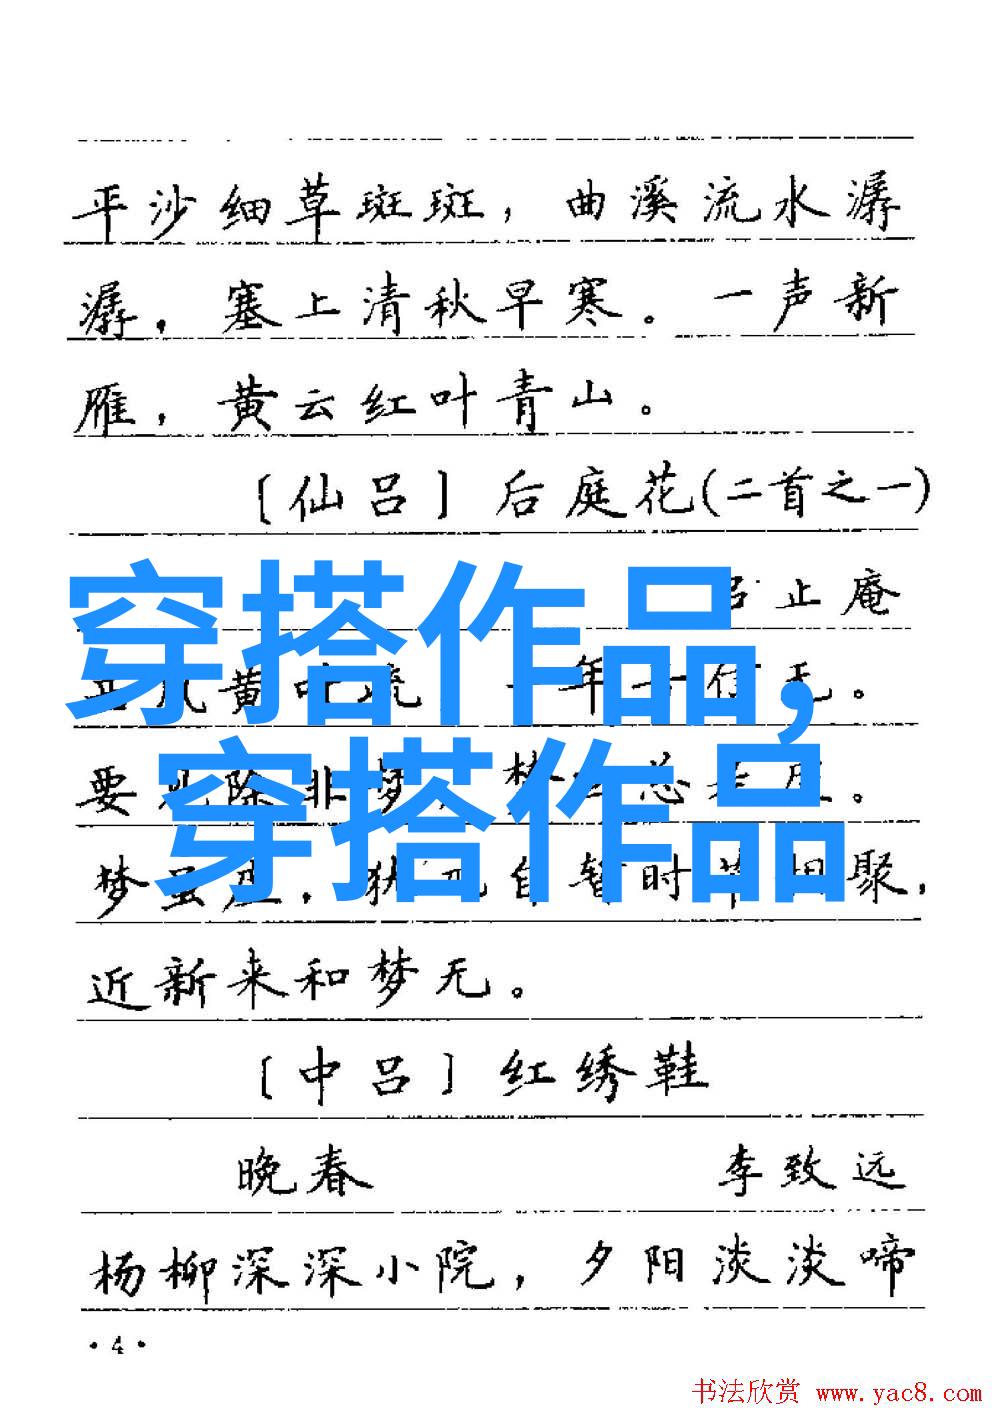 平沙细草斑斑，曲溪流水潺
潺，塞上清秋早寒。一声新
雁，黄云红叶青山。
〔仙吕〕后庭花(二首之一)
穿搭作品,
吕止庵
黄叶疏 一年 信无。
要见除非梦 梦 总是虚。
穿搭作品
梦虽虚，犹兀自暂时节相聚，
近新来和梦无。
〔中吕〕红绣鞋
晚春 李致远
杨柳深深小院，夕阳淡淡啼
·4·
书法欣赏 www.yac8.com